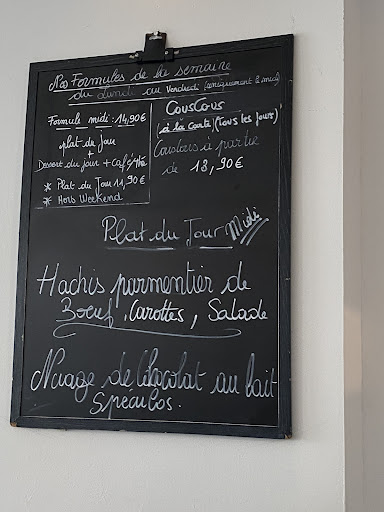 Nos Formules de la semaine
du Lundi au Vendredi (uniquement le midi)
Formule midi : 14,90€
plat du jour
+
Dessert du jour + café/thé
* Plat du Jour 11,90€
* Hors Weekend
CousCous
(à la carte) (tous les jours)
Couscous à partir
de 13,90€
Plat du Jour Midi
Hachis parmentier de
Boeuf, Carottes, Salade
Nuage de Chocolat au lait
Spéculos.